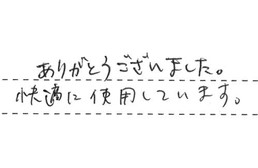 ありがとうございました。
快適に使用しています。